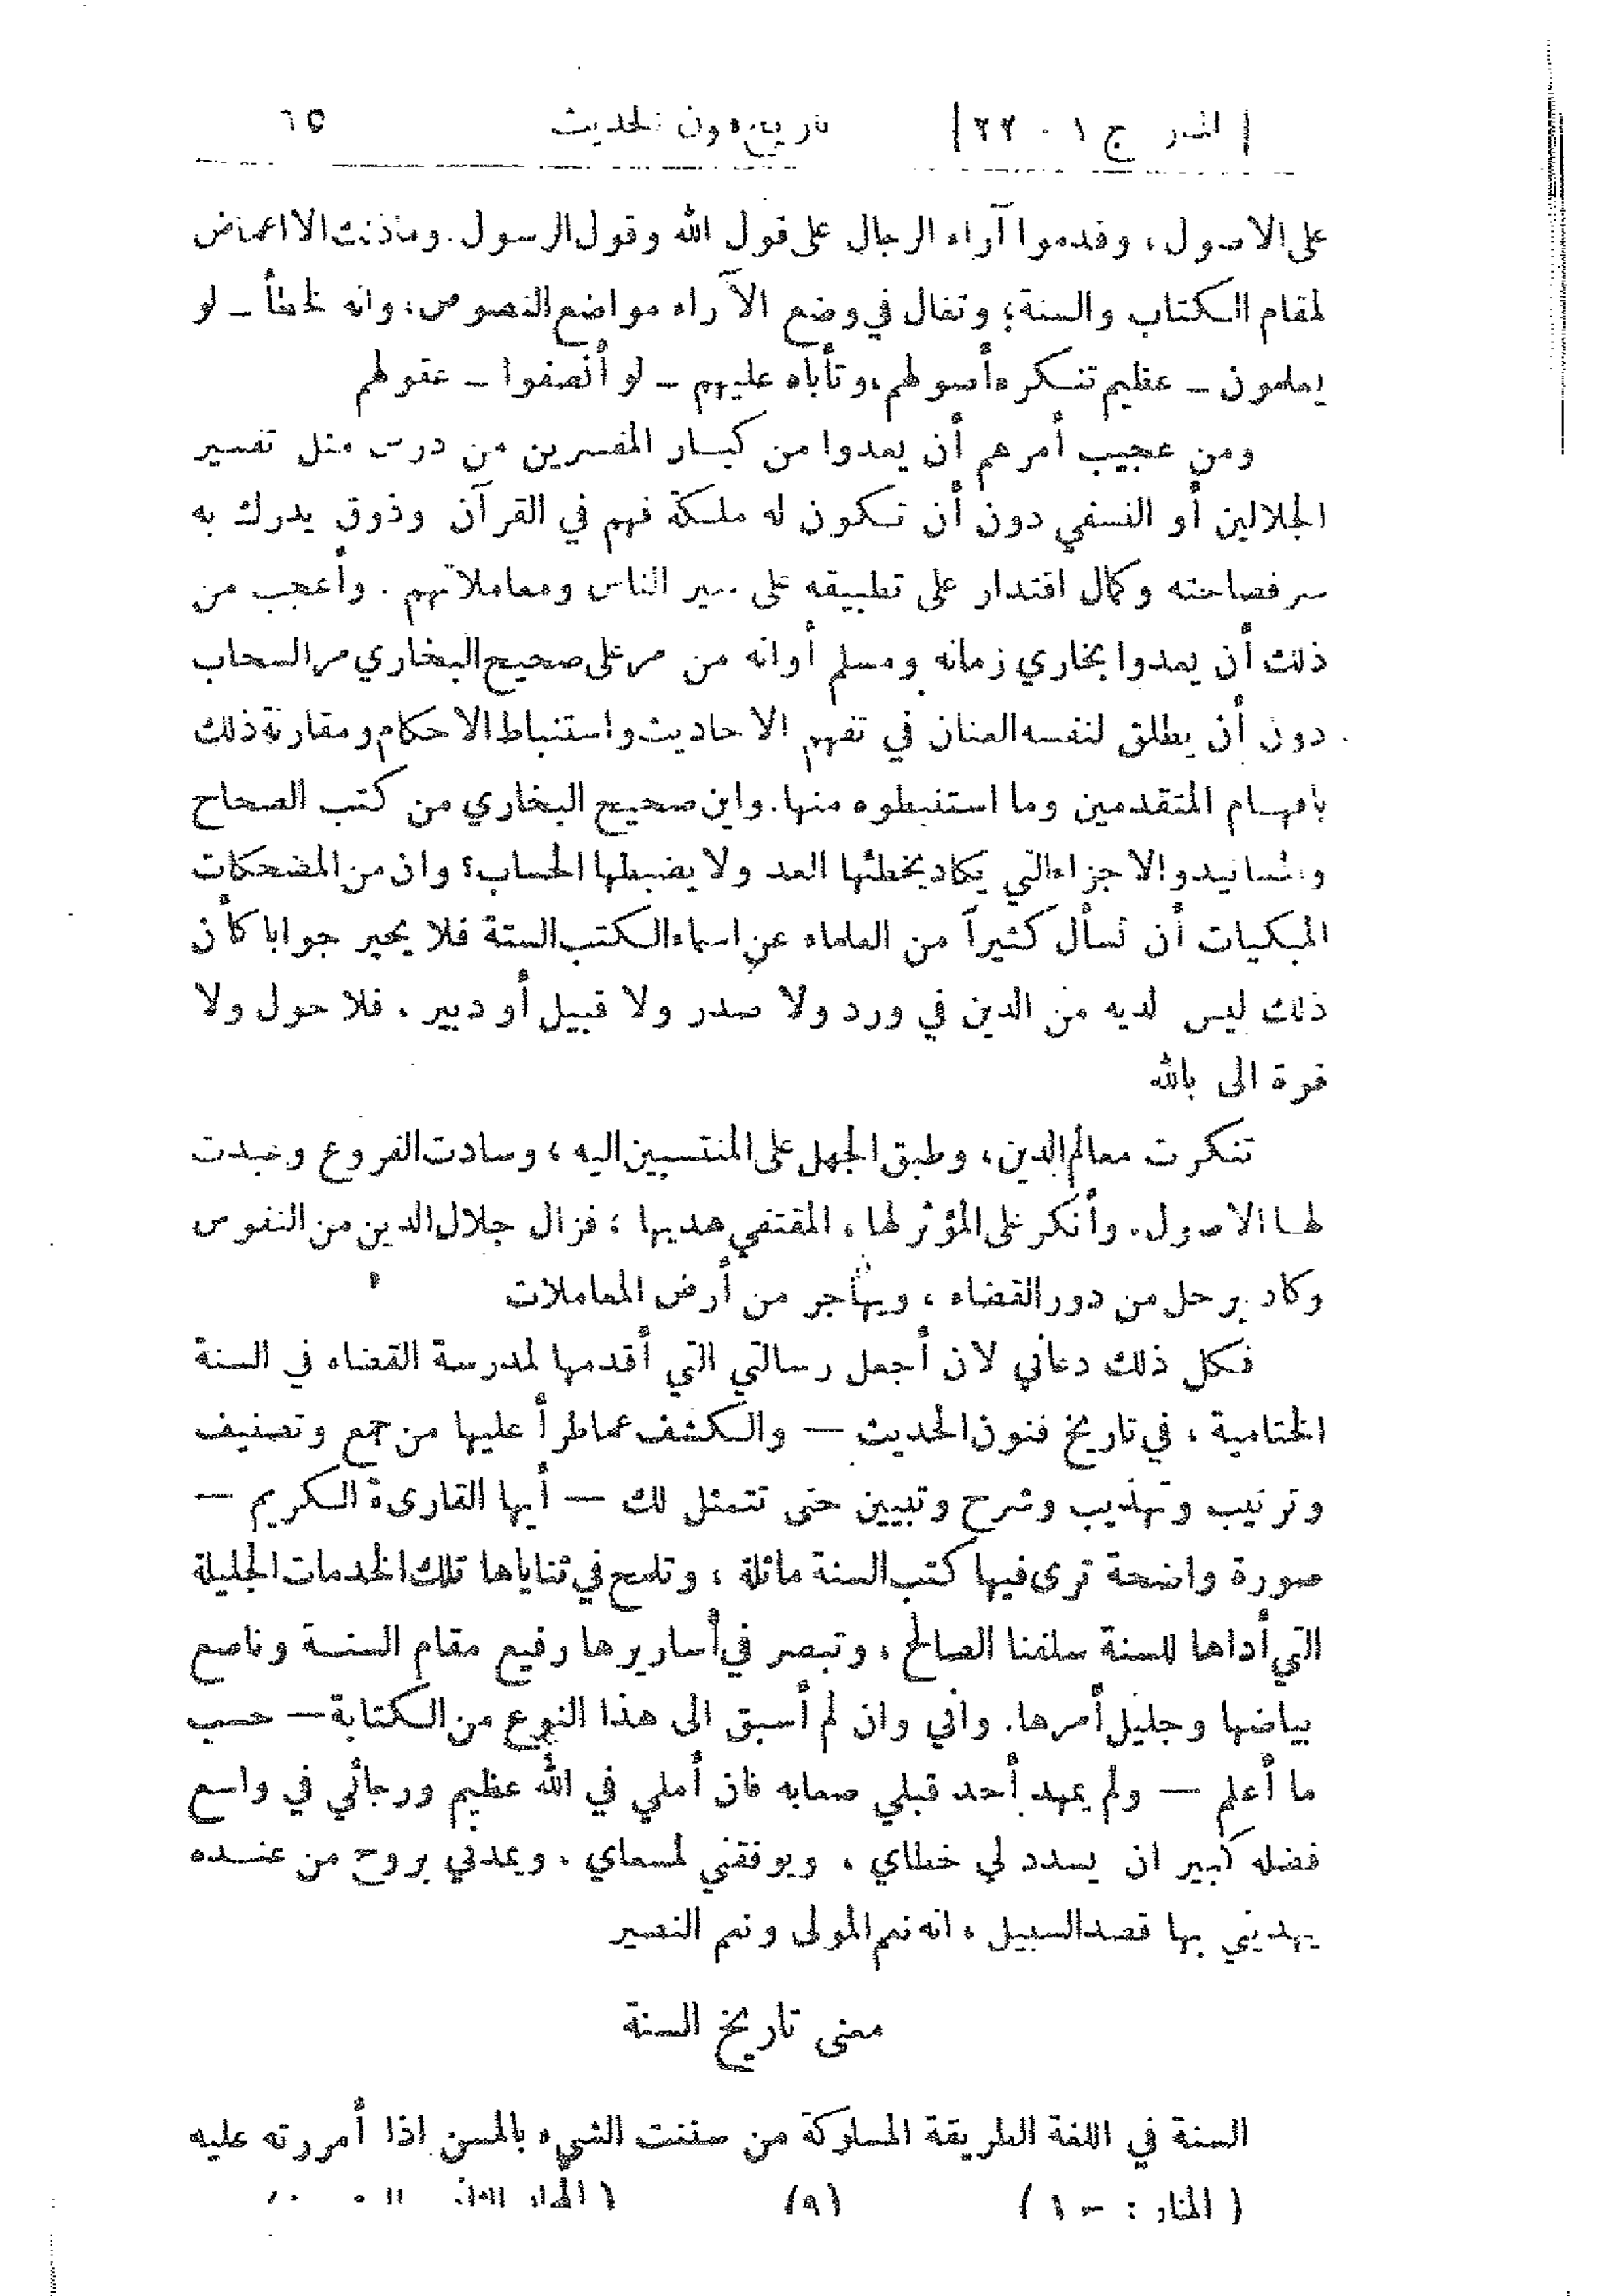 المنار ج ١ م ٢٢ تاريخ فنون الحديث ٦٥
على الاصول، وقدموا آراء الرجال على قول الله وقول الرسول. وما ذلك الا اغماض
لمقام الكتاب والسنة؛ وتغال في وضع الآراء مواضع النصوص، وانه لخطأ ــ لو
يعلمون ــ عظيم تنكره أصولهم، وتأباه عليهم ــ لو أنصفوا ــ عقولهم
ومن عجيب أمرهم أن يعدوا من كبار المفسرين من درس مثل تفسير
الجلالين أو النسفي دون أن تكون له ملكة فهم في القرآن وذوق يدرك به
سر فصاحته وكمال اقتدار على تطبيقه على سير الناس ومعاملاتهم . وأعجب من
ذلك أن يعدوا بخاري زمانه ومسلم أوانه من مر على صحيح البخاري مر السحاب
دون أن يطلق لنفسه العنان في تفهم الاحاديث واستنباط الاحكام ومقارنة ذلك
بافهام المتقدمين وما استنبطوه منها. واين صحيح البخاري من كتب الصحاح
والمسانيد والاجزاء التي يكاد يخطئها العد ولا يضبطها الحساب؟ وان من المضحكات
المبكيات أن تسأل كثيراً من العلماء عن اسماء الكتب الستة فلا يحير جوابا كأن
ذلك ليس لديه من الدين في ورد ولا صدر ولا قبيل أو دبير . فلا حول ولا
قوة الى بالله
تنكرت معالم الدين، وطبق الجهل على المنتسبين اليه ، وسادت الفروع وعبدت
لها الاصول. وأنكر على المؤثر لها ، المقتفي هديها ؛ فزال جلال الدين من النفوس
وكاد يرحل من دور القضاء ، ويهاجر من أرض المعاملات
فكل ذلك دعاني لان أجعل رسالتي التي أقدمها لمدرسة القضاء في السنة
الختامية ، في تاريخ فنون الحديث — والكشف عما طرأ عليها من جمع وتصنيف
وترتيب وتهذيب وشرح وتبيين حتى تتمثل لك — أيها القارىء الكريم —
صورة واضحة ترى فيها كتب السنة ماثلة ، وتلمح في ثناياها تلك الخدمات الجليلة
التي أداها للسنة سلفنا الصالح ، وتبصر في أساريرها رفيع مقام السنة وناصع
بياضها وجليل أمرها. واني وان لم أسبق الى هذا النوع من الكتابة — حسب
ما أعلم — ولم يمهد أحد قبلي صعابه فان أملي في الله عظيم ورجائي في واسع
فضله كبير ان يسدد لي خطاي ، ويوفقني لمسعاي . ويمدني بروح من عنده
يهديني بها قصد السبيل ، انه نعم المولى ونعم النصير
معنى تاريخ السنة
السنة في اللغة الطريقة المسلوكة من سننت الشيء بالمسن اذا أمررته عليه
( المنار : ج ١ ) (٩) ( المجلد الثاني